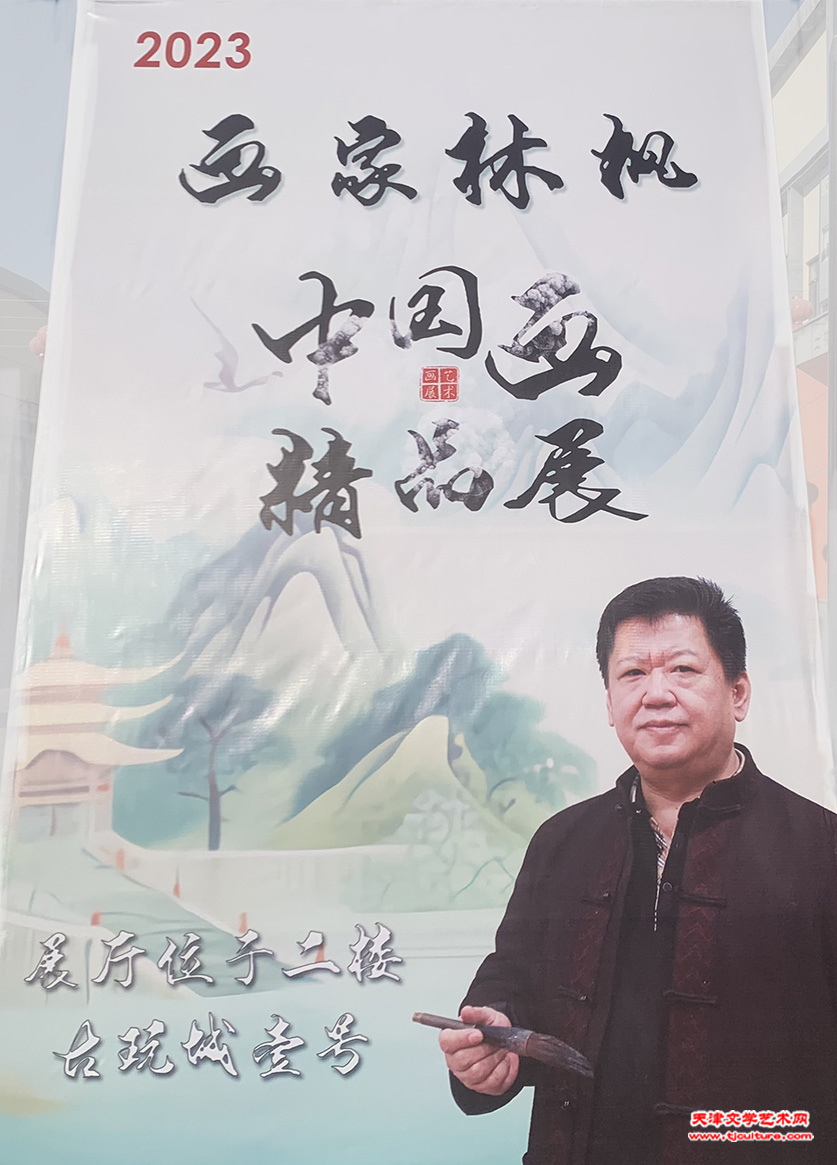 2023
画家林枫
中国画
艺术
画展
精品展
展厅位于二楼
古玩城壹号
天津文学艺术网
www.tjculture.com